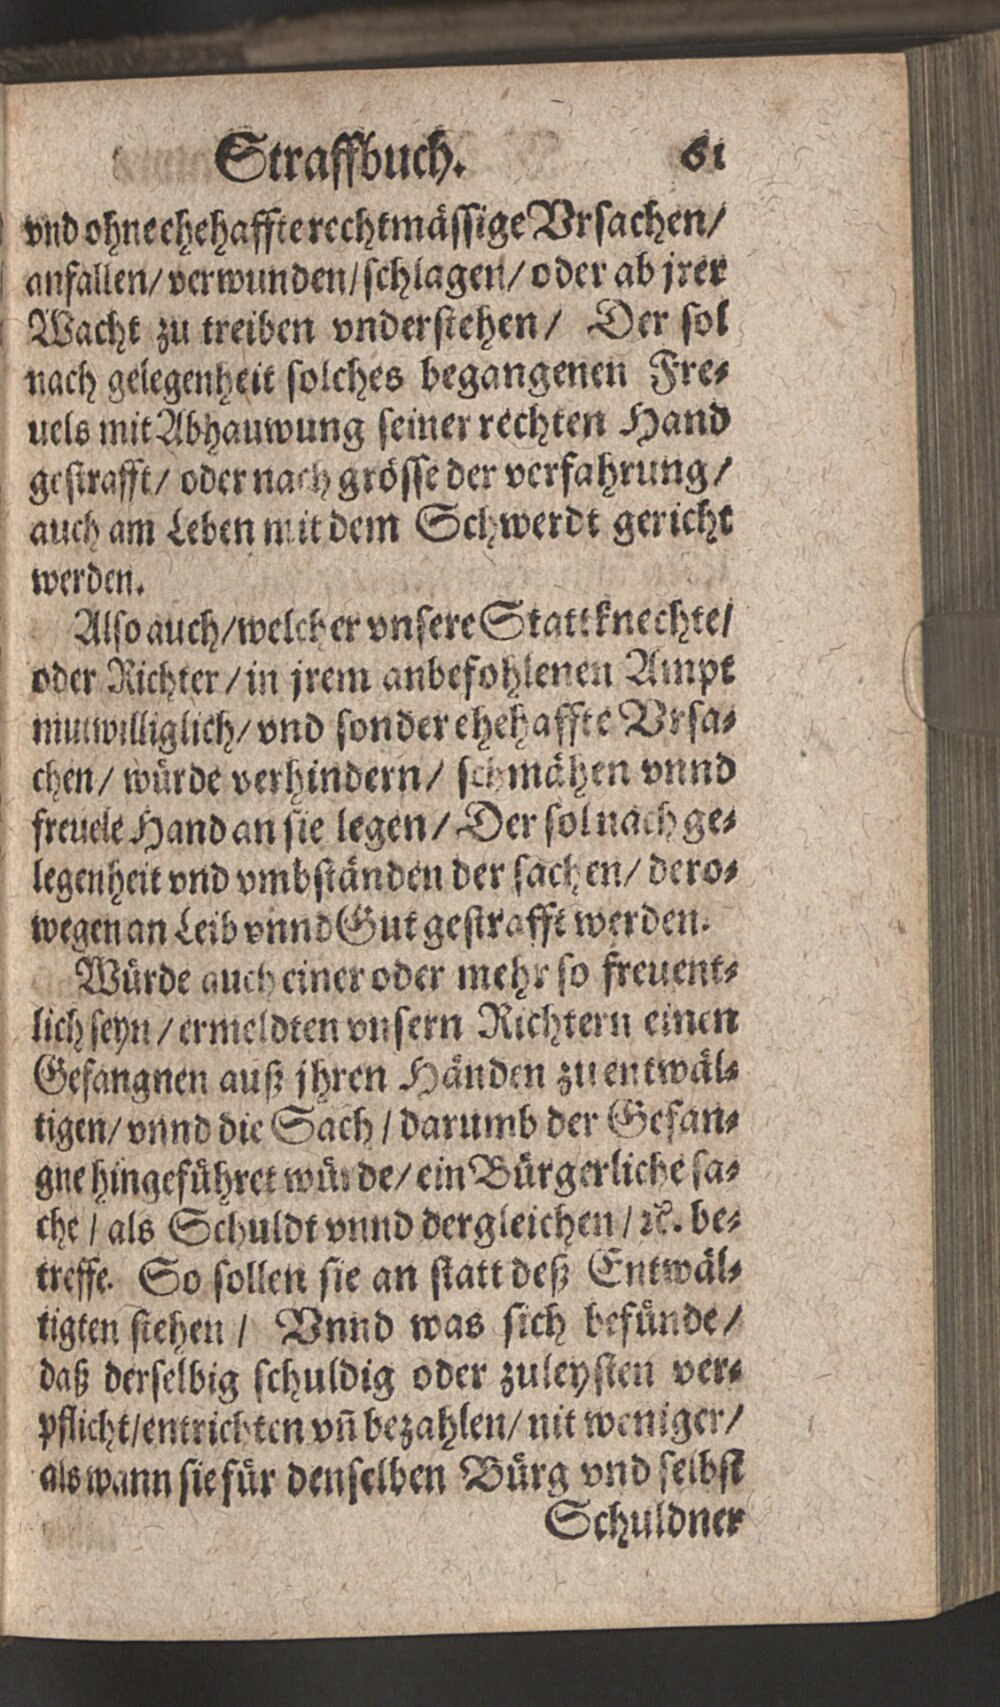 Straffbuch. 61
vnd ohne ehehaffte rechtmässige Vrsachen/
anfallen/ verwunden/ schlagen/ oder ab jrer
Wacht zu treiben vnderstehen/ Der sol
nach gelegenheit solches begangenen Fre-
uels mit Abhauwung seiner rechten Hand
gestrafft/ oder nach grösse der verfahrung/
auch am Leben mit dem Schwerdt gericht
werden.
Also auch/ welcher vnsere Stattknechte/
oder Richter/ in jrem anbefohlenen Ampt
mutwilliglich/ vnd sonder ehehaffte Vrsa-
chen/ würde verhindern/ schmähen vnnd
freuele Hand an sie legen/ Der sol nach ge-
legenheit vnd vmbständen der sachen/ dero-
wegen an Leib vnnd Gut gestrafft werden.
Würde auch einer oder mehr so freuent-
lich seyn/ ermeldten vnsern Richtern einen
Gefangnen auß jhren Händen zu entwäl-
tigen/ vnnd die Sach/ darumb der Gefan-
gne hingeführet würde/ ein Bürgerliche sa-
che/ als Schuldt vnnd dergleichen/ ꝛc. be-
treffe. So sollen sie an statt deß Entwäl-
tigten stehen/ Vnnd was sich befünde/
daß derselbig schuldig oder zuleysten ver-
pflicht/ entrichten vn̄ bezahlen/ nit weniger/
als wann sie für denselben Bürg vnd selbst
Schuldner